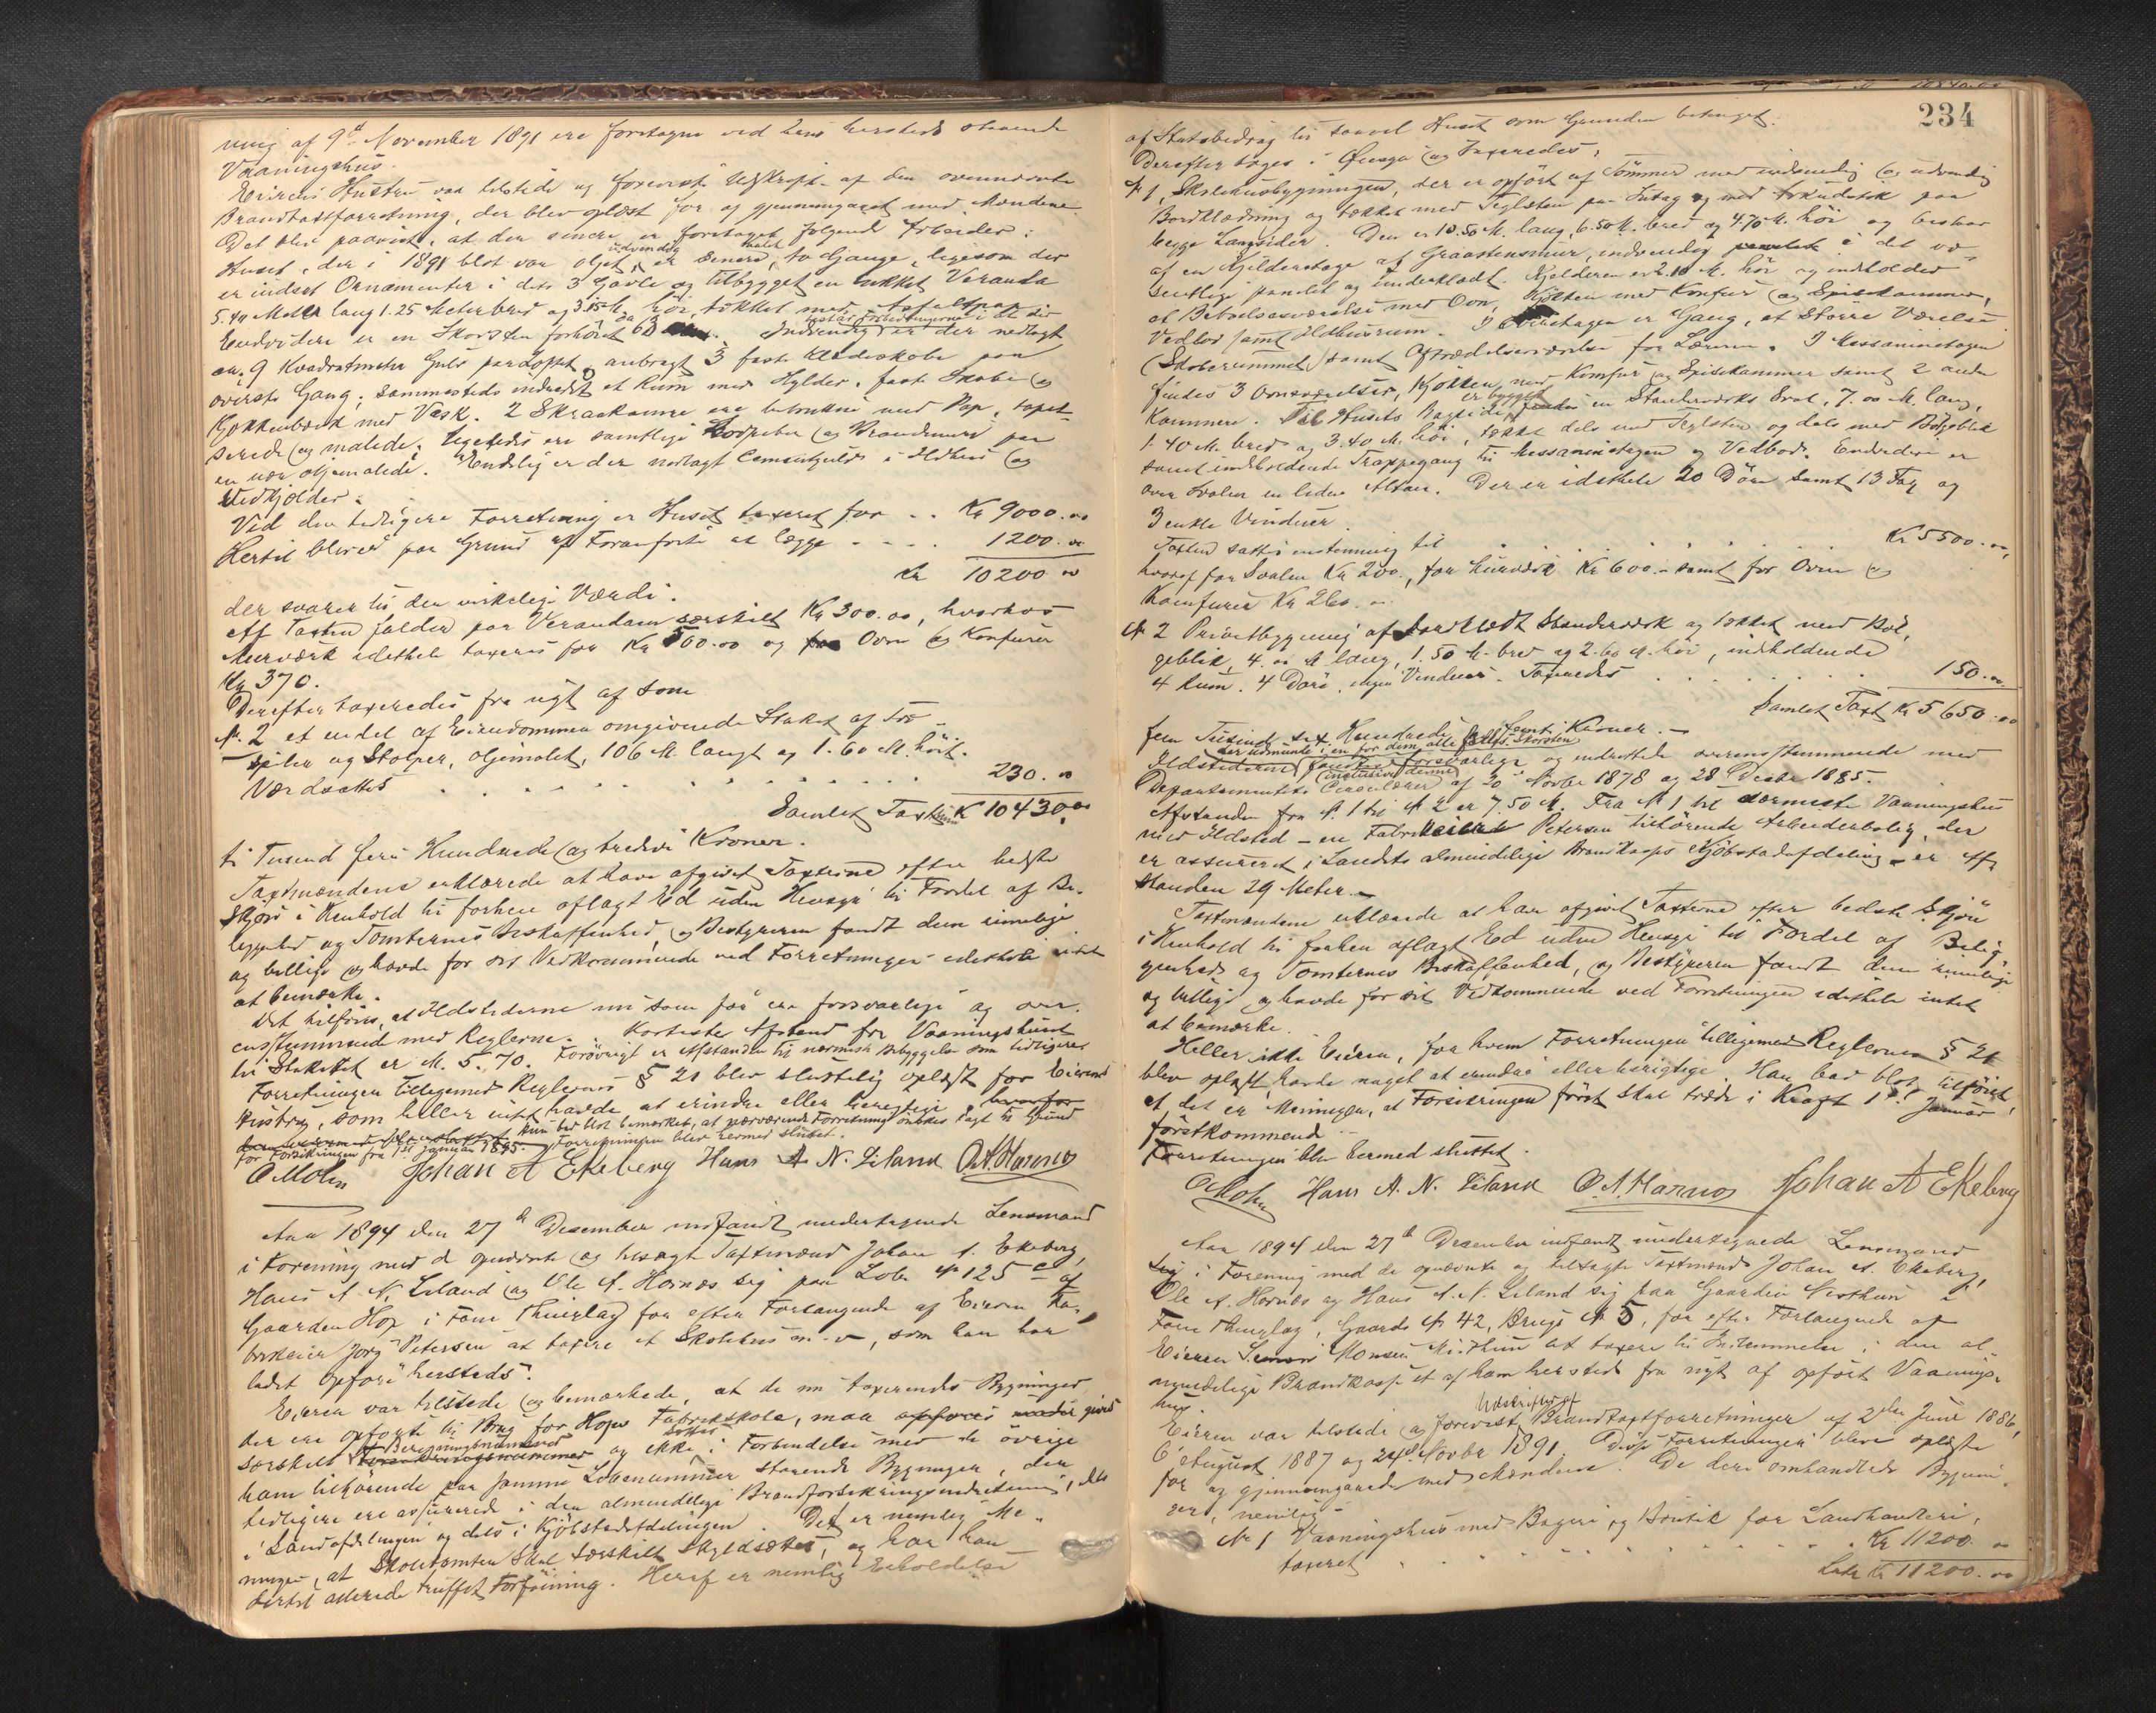 ning af 9de November 1891 ere foretagne ved hans hersteds staaende
Vaaningshus.
Eierens Hustru var tilstede og foreviste Udskrift af den ovennævnte
Brandtaxtforretning, der blev oplæst for og gjennemgaaet med Mændene.
Det blev paavist, at der senere er foretaget følgende Arbeider:
Huset, der i 1891 blot var oljet, er udvendig senere malet to Gange, ligesom der
er indsat Ornamenter i dets 3 Gavle og tilbygget en lukket Veranda
5.40 Meter lang 1.25 Meter bred og 3.15 M. høi, tækket med Asfaltpap.
Endvidere er en Skorsten forhøiet ca 60 Indvendig består Forbedringerne i at der er der nedlagt
ca. 9 Kvadratmeter Gulv paa Loftet, anbragt 3 faste Klædeskabe paa
øverste Gang; sammesteds indredet et Rum med Hylder, faste Skabe og
Kjøkkenbænk med Vask. 2 Skraakamre ere betrukne med Pap, tapet-
serede og malede. Ligeledes ere samtlige og Brandmure paa
en nær oljemalede. Endelig er der nedlagt Cementgulv i Ildhus og
Vedkjælder.
Ved den tidligere Forretning er Huset taxeret for .. Kr 9000.00
Hertil bliver paa Grund af Foranførte at lægge - - - . 1200.00
Kr 10200.00
der svarer til den virkelige Værdi.
Af Taxten falder paa Verandaen særskilt Kr 300.00, hvorhos
Murværk idethele taxeres for Kr 500.00 og Ovne og Komfurer
Kr 370.
Derefter taxeredes fra nyt af som
№ 2 et endel af Eiendommen omgivende Stakit af Træ-
spiler og Stolper, oljemalet, 106 M. langt og 1.60 M. høit.
Værdsattes . . . . . . . . 230.00
Samlet Taxt Kr 10430.00
ti Tusend fire Hundrede og tredive Kroner.
Taxtmændene erklærede at have afgivet Taxterne efter bedste
Skjøn i Henhold til forhen aflagt Ed uden Hensyn til Fordel af Be-
liggenhed og Tomternes Beskaffenhed, og Bestyreren fandt dem rimelige
og billige og havde for sit Vedkommende ved Forretningen idethele intet
at bemærke.
Det tilføies, at Ildstederne nu som før ere forsvarlige og over-
ensstemmende med Reglerne. Korteste Afstand fra Vaaningshuset
til Stakittet er M. 5.70. Forøvrigt er Afstanden til nærmeste Bebyggelse som tidligere.
Forretningen tilligemed Reglernes § 21 blev sluttelig oplæst for Eierens
Hustru, som heller intet havde at erindre eller berigtige
hun bad blot bemærket, at nærværende Forretning ønskes lagt til Grund
for Forsikringen fra 1ste Januar 1895. Forretningen blev hermed sluttet.
O Mohn Johan A Ekeberg Hans A. N. Liland O.A. Hornos
Aar 1894 den 27de Desember indfandt undertegnede Lensmand
i Forening med de opnævnte og tilsagte Taxtmænd Johan A. Ekeberg,
Hans A. N. Liland og Ole A. Hornæs sig paa Løbe № 125 c af
Gaarden Hop i Fane Thinglag for efter Forlangende af Eieren Fa-
brikeier Jørg. Petersen at taxere et Skolehus m. v., som han har
ladet opføre hersteds.
Eieren var tilstede og bemærkede, at de nu taxerendes Bygninger
der ere opførte til Brug for Hops Fabrikskole, maa opføres under gives
særskilt Beregningsnummer og ikke sættes i Forbindelse med de øvrige
ham tilhørende paa samme Løbenummer staaende Bygninger, der
tidligere ere assurerede i den almindelige Brandforsikringsindretning, dels
i Landafdelingen og dels i Kjøbstadafdelingen. Det er nemlig Me-
ningen, at Skoletomten skal særskilt skyldsættes, og har han
dertil allerede truffet Forføining. Heraf er nemlig Erholdelse
234
af Statsbidrag til saavel Huset som Grunden betinget.
Derefter toges i Øiesyn og taxeredes:
№ 1, Skolehusbygningen, der er opført af Tømmer med indvendig og udvendig
Bordklædning og tækket med Teglsten paa Sutag og med paa
begge Langsider. Den er 10.50 M. lang, 6.50 M. bred og 4.70 M. høi og bestaar
af en Kjelderetage af Graastensmur, indvendig i det væ-
sentlige panelet og underklædt. Kjelderen er 2.10 M. høi og indholder
et Beboelsesværelse med Ovn, Kjøkken med Komfur og Spisekammer,
Vedbod samt Ildhusrum. I er Gang, et større Værelse
(Skoleværelset) samt Aftrædelsesværelse for Læreren. I Messaninetagen
findes 3 Ovnsværelser, Kjøkken med Komfur og Spisekammer samt 2 andre
Kammere. Til Husets Bagside er bygget en Standværks Sval, 7.00 M. lang,
1.40 M. bred og 3.40 M. høi, tækket dels med Teglsten og dels med Bølgeblik
samt indholdende Trappegang til Messaninetagen og Vedbod. Endvidere er
over Svalen en liden Altan. Der er idethele 20 Døre samt 13 Fag og
3 enkle Vinduer.
Taxten sattes enstemmig til . . . . . . . Kr 5500.00,
hvoraf for Svalen Kr 200., for Murværk Kr 600.- samt for Ovne og
Komfurer Kr 260.-
№ 2 Privetbygning af bordklædt Standværk og tækket med Bøl-
geblik, 4.00 M. lang, 1.50 M. bred og 2.60 M. høi, indholdende
4 Rum. 4 Døre, ingen Vinduer. Taxeredes . . . . . 150.00
Samlet Taxt Kr 5650.00
fem Tusind sex Hundrede og femti Kroner.-
Ildstederne, der udmunde i en for dem alle fælles Skorsten (inclusive denne) fandtes forsvarlige og indrettede overensstemmende med
Departementets Circulærer af 20 Novbr 1878 og 28 Decbr 1885.
Afstanden fra № 1 til № 2 er 7.50 M. Fra № 1 til nærmeste Vaaningshus
med Ildsted – en Fabrikeier Petersen tilhørende Arbeiderbolig, der
er assureret i Landets almindelige Brandkasses Kjøbstadafdeling – er Af-
standen 29 Meter.-
Taxtmændene erklærede at have afgivet Taxterne efter bedste Skjøn
i Henhold til forhen aflagt Ed uden Hensyn til Fordel af Belig-
genhed og Tomternes Beskaffenhed, og Bestyreren fandt dem rimelige
og billige og havde for sit Vedkommende ved Forretningen idethele intet
at bemærke.
Heller ikke Eieren, for hvem Forretningen tilligemed Reglernes § 21
blev oplæst, havde noget at erindre eller berigtige. Han bad blot tilføiet,
at det er Meningen, at Forsikringen først skal træde i Kraft 1ste Januar
førstkommende.
Forretningen blev hermed sluttet.
O Mohn Hans A. N. Liland O.A. Hornos Johan A Ekeberg
Aar 1894 den 27de December indfandt undertegnede Lensmand
sig i Forening med de opnævnte og tilsagte Taxtmænd Johan A. Ekeberg,
Ole A. Hornæs og Hans A. N. Liland sig paa Gaarden Nesttun i
Fane Thinglag, Gaards № 42, Brugs № 5, for efter Forlangende af
Eieren Simon Monsen Midttun at taxere til Indlemmelse i den al-
mindelige Brandkasse et af ham hersteds fra nyt af opført Vaanings-
hus.
Eieren var tilstede og foreviste Udskrifter af Brandtaxtforretninger af 2den Juni 1886,
6 August 1887 og 24de Novbr 1891. Disse Forretninger bleve oplæste
for og gjennemgaaede med Mændene. De deri omhandlede Bygnin-
ger, nemlig:
№ 1 Vaaningshus med Bageri og Boutik for Landhandleri,
taxeret . . . . . . . . Kr 11200.00
Lats Kr 11200.00